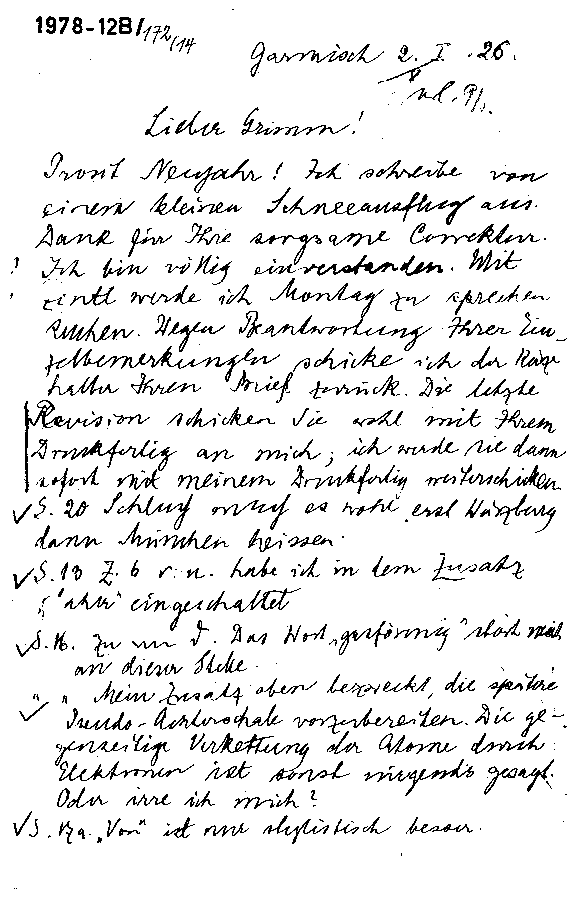 1978-12B/172/14
Garmisch 2. I. 26.
Lieber Grimm!
Prosit Neujahr! Ich schreibe von
einem kleinen Schneeausflug aus.
Dank für Ihre sorgsame Correktur.
! Ich bin völlig einverstanden. Mit
! Zintl werde ich Montag zu sprechen
suchen. Wegen Beantwortung Ihrer Ein-
zelbemerkungen schicke ich der Kürze
halber Ihren Brief zurück. Die letzte
Revision schicken Sie wohl mit Ihrem
Druckfertig an mich; ich werde sie dann
sofort mit meinem Druckfertig weiterschicken.
✓ S. 20 Schluß muß es wohl erst Würzburg
dann München heissen.
✓ S. 13 Z. 6 v. u. habe ich in dem Zusatz
"aktiv" eingeschaltet
✓ S. 16. Zu Das Wort „gasförmig" stört mich
an dieser Stelle.
✓ " " Mein Zusatz oben bezweckt, die spätere
Pseudo-Achterschale vorzubereiten. Die ge-
genseitige Verkettung der Atome durch
Elektronen ist sonst nirgends gesagt.
Oder irre ich mich?
✓ S. „Von" ist nur stylistisch besser.